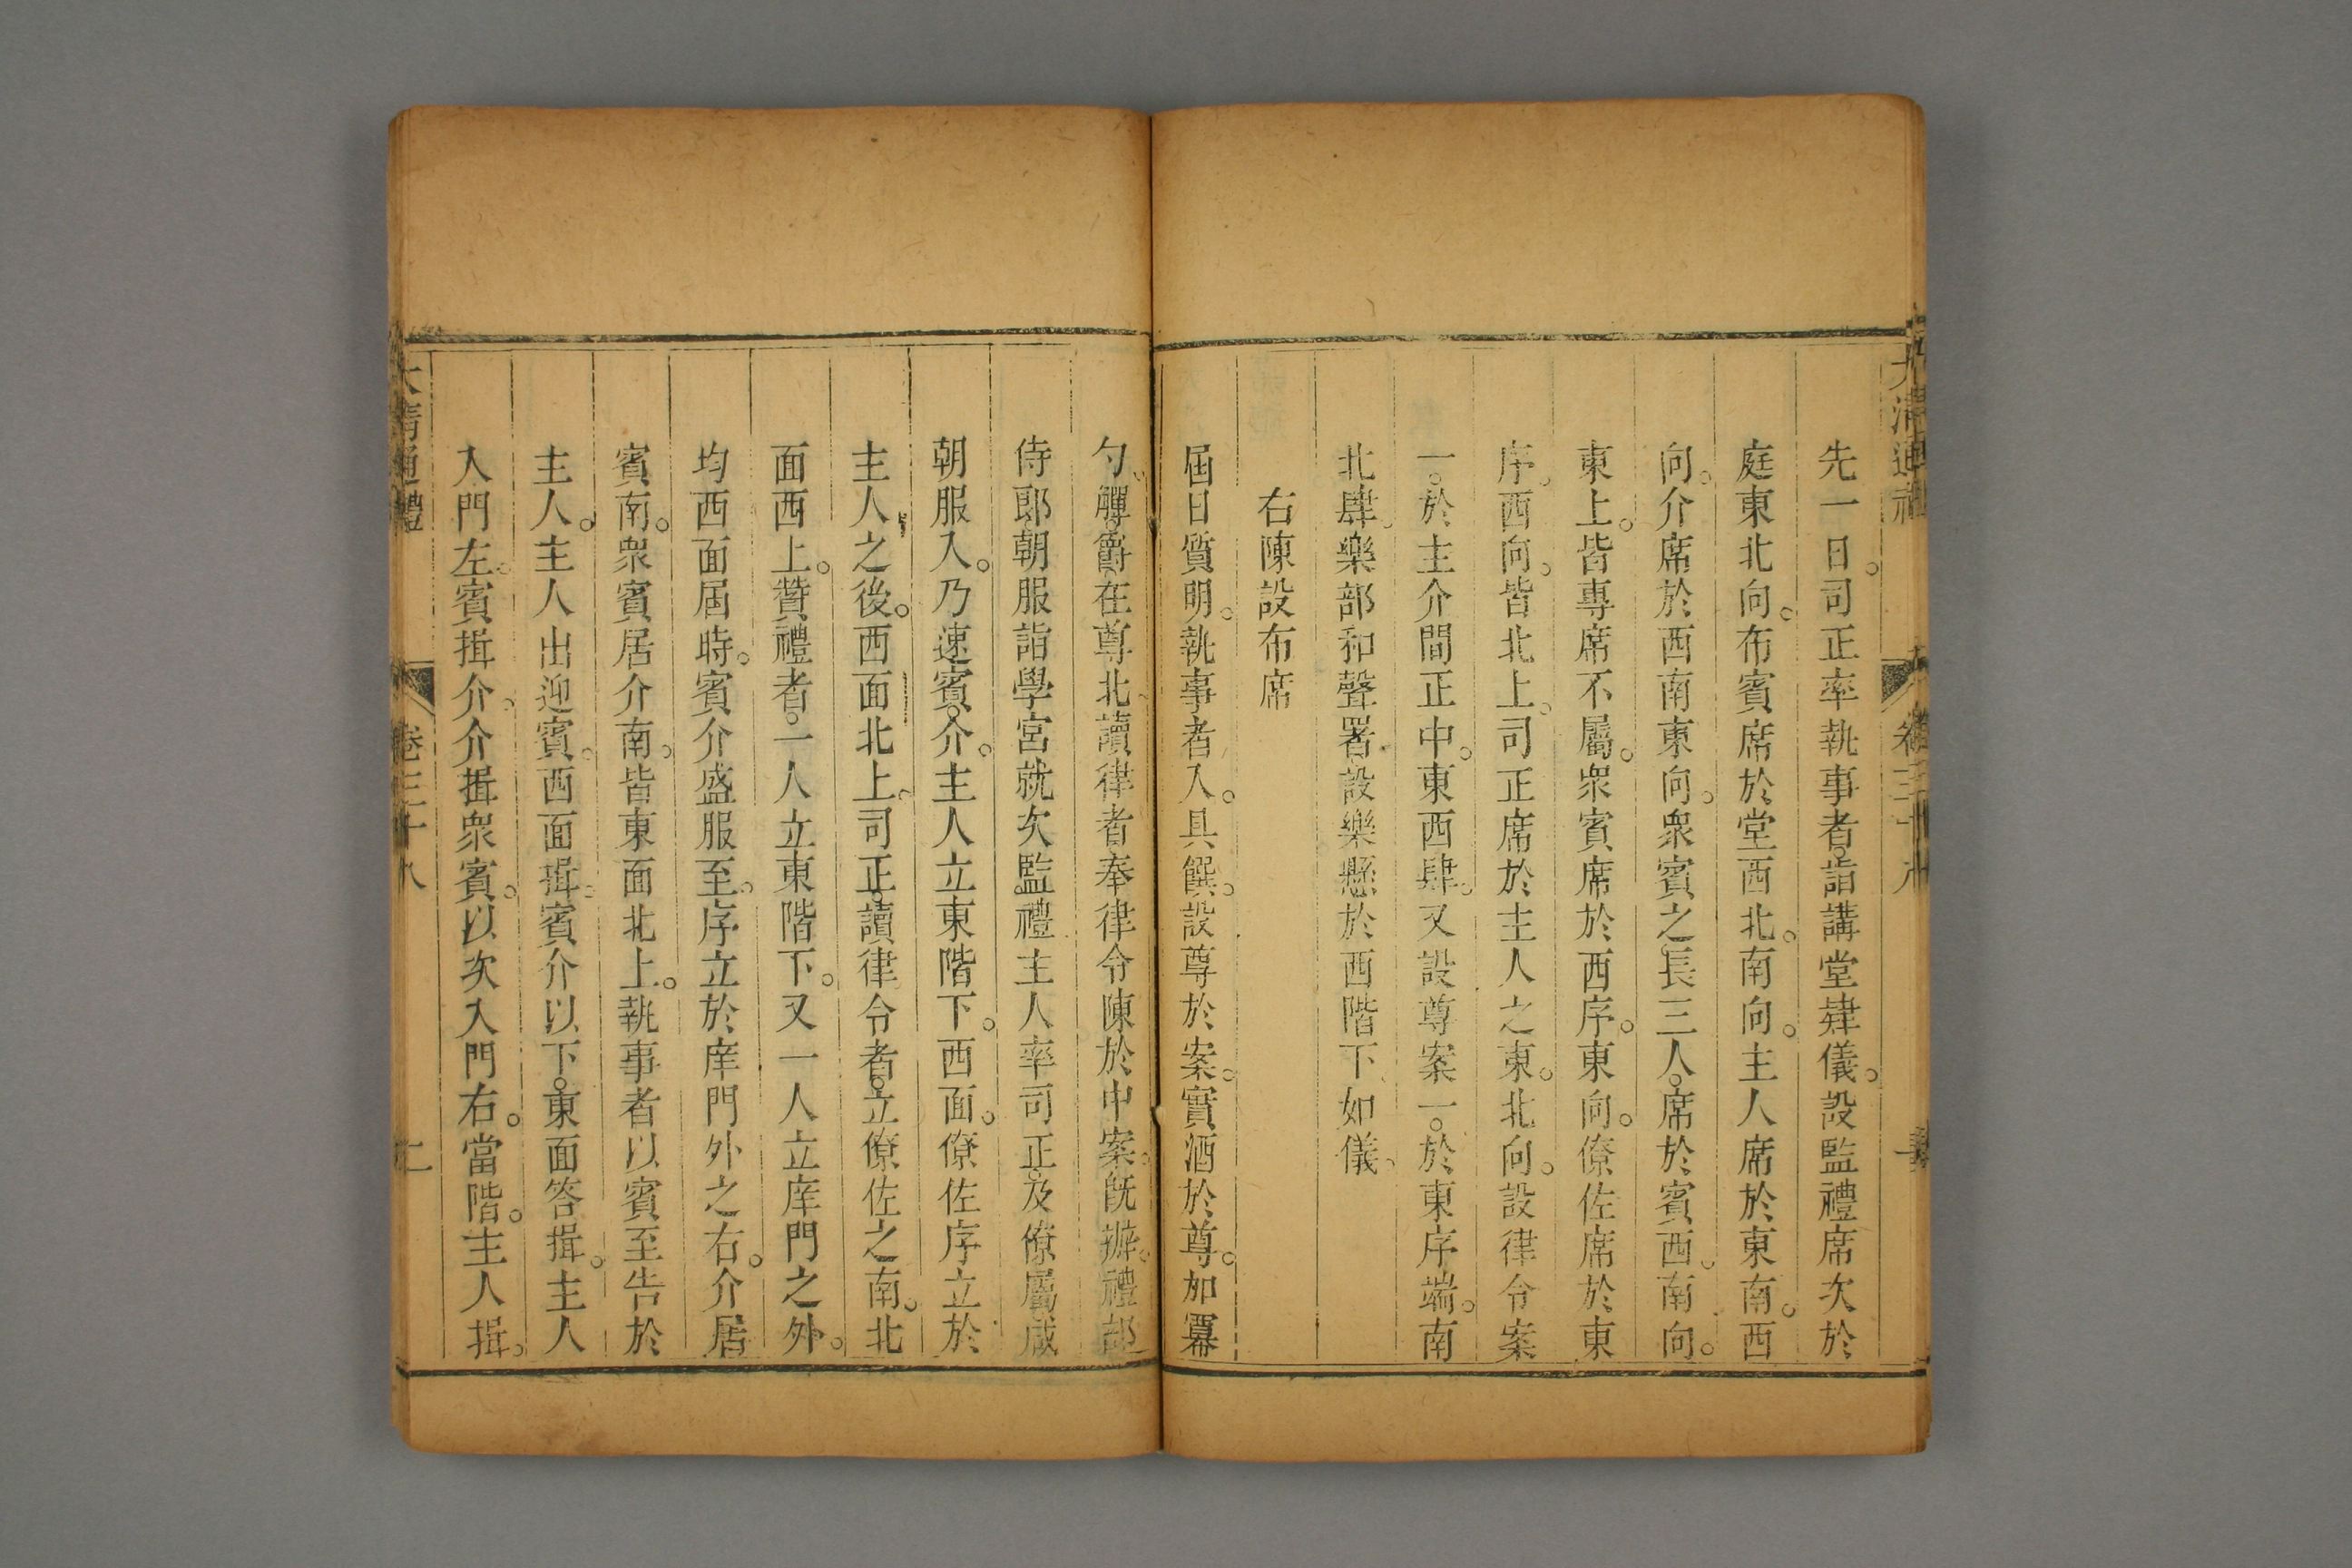 大清通禮 卷三十八
先一日。司正率執事者。詣講堂肄儀。設監禮席次於
庭東北向。布賓席於堂西北。南向。主人席於東南。西
向。介席於西南東向。衆賓之長三人。席於賓西。南向。
東上。皆專席不屬。衆賓席於西序。東向。僚佐席於東
序。西向。皆北上。司正席於主人之東。北向。設律令案
一。於主介間正中。東西肆。又設尊案一。於東序端。南
北肆。樂部和聲署。設樂懸於西階下如儀。
右陳設布席
屆日質明。執事者入。具饌。設尊於案。實酒於尊。加冪
勺。觶。爵在尊北。讀律者奉律令陳於中案。旣辦。禮部
侍郎朝服詣學宮就次監禮主人率司正。及僚屬咸
朝服入。乃速賓。介。主人立東階下。西面。僚佐序立於
主人之後。西面北上。司正。讀律令者。立僚佐之南。北
面西上。贊禮者。一人立東階下。又一人立庠門之外。
均西面屆時。賓介盛服至。序立於庠門外之右。介居
賓南。衆賓居介南。皆東面北上。執事者以賓至告於
主人。主人出迎賓。西面揖。賓介以下。東面答揖。主人
入門左。賓揖介。介揖衆賓。以次入門右。當階。主人揖。
大清通禮 卷三十八